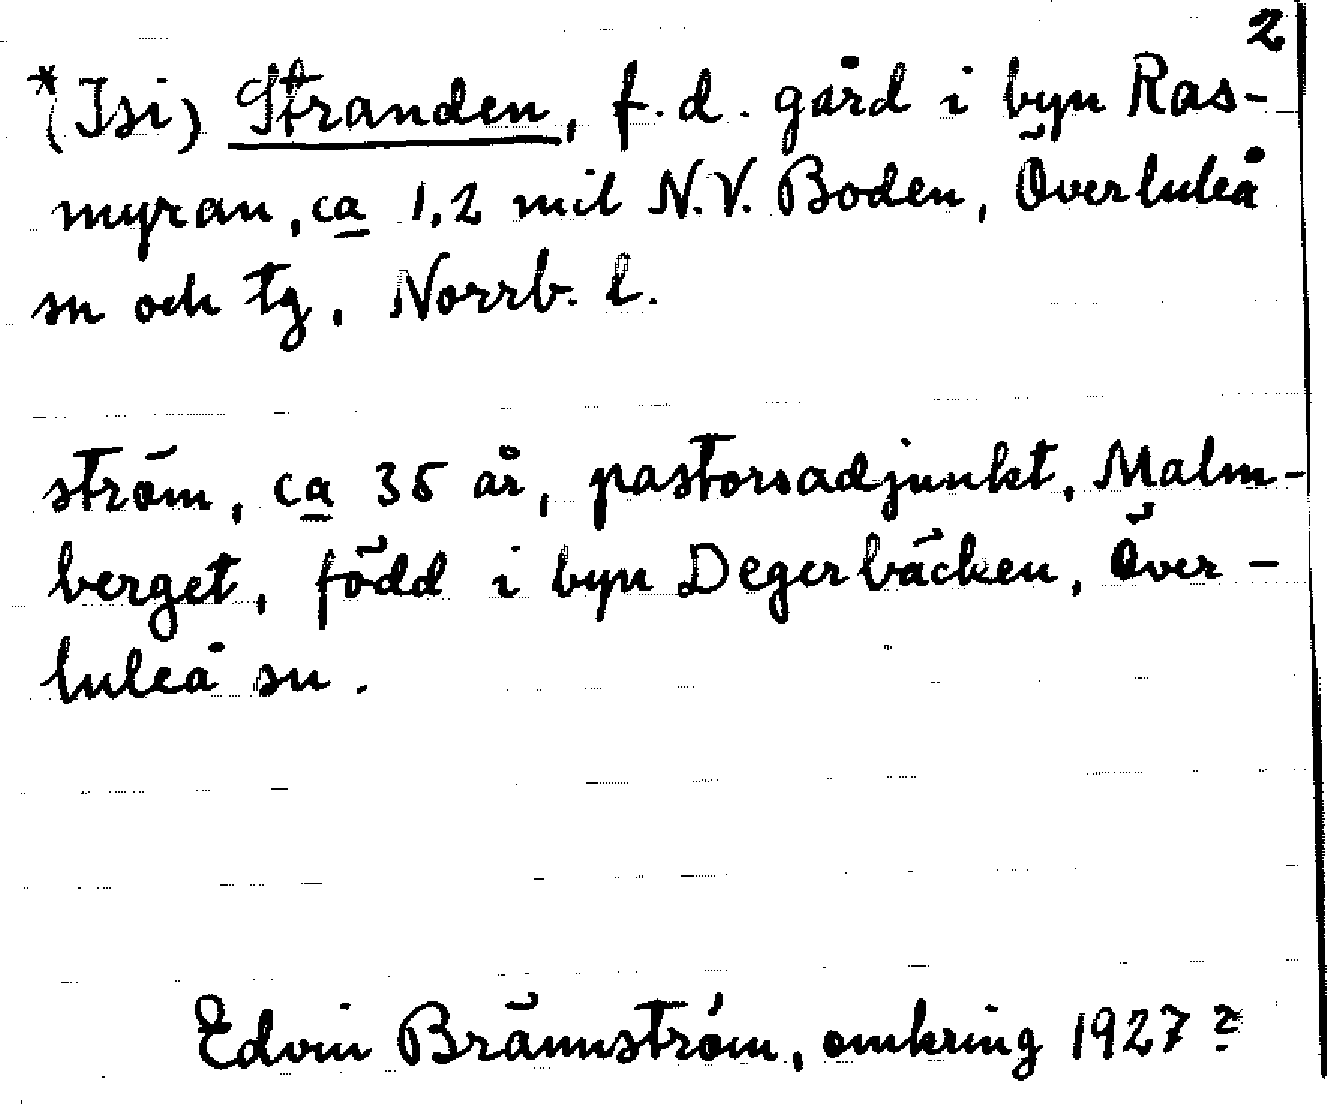 2
*(Isi) Stranden, f.d. gård i byn Ras-
myran, ca 1,2 mil N.V. Boden, Överluleå
sn och tg, Norrb. l.
ström, ca 35 år, pastorsadjunkt, Malm-
berget, född i byn Degerbäcken, Över-
luleå sn.
Edvin Brännström, omkring 1927?